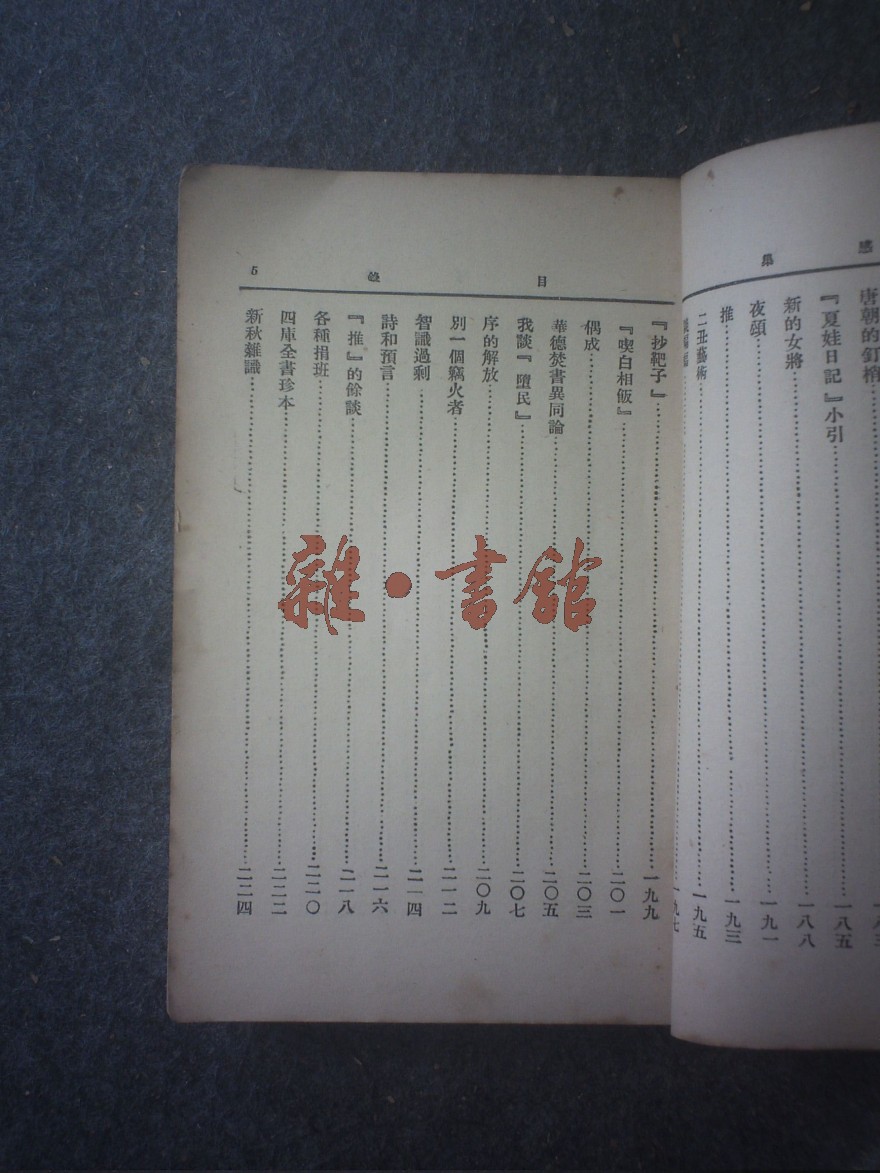 感
集
唐朝的釘梢……一八三
『夏娃日記』小引……一八五
新的女將……一八八
夜頌……一九一
推……一九三
二丑藝術……一九五
一九七
目
錄
5
『抄靶子』……一九九
『喫白相飯』……二〇一
偶成……二〇三
華德焚書異同論……二〇五
我談『墮民』……二〇七
序的解放……二〇九
別一個竊火者……二一二
智識過剩……二一四
詩和預言……二一六
『推』的餘談……二一八
各種捐班……二二〇
四庫全書珍本……二二二
新秋雜識……二二四
雜·書館